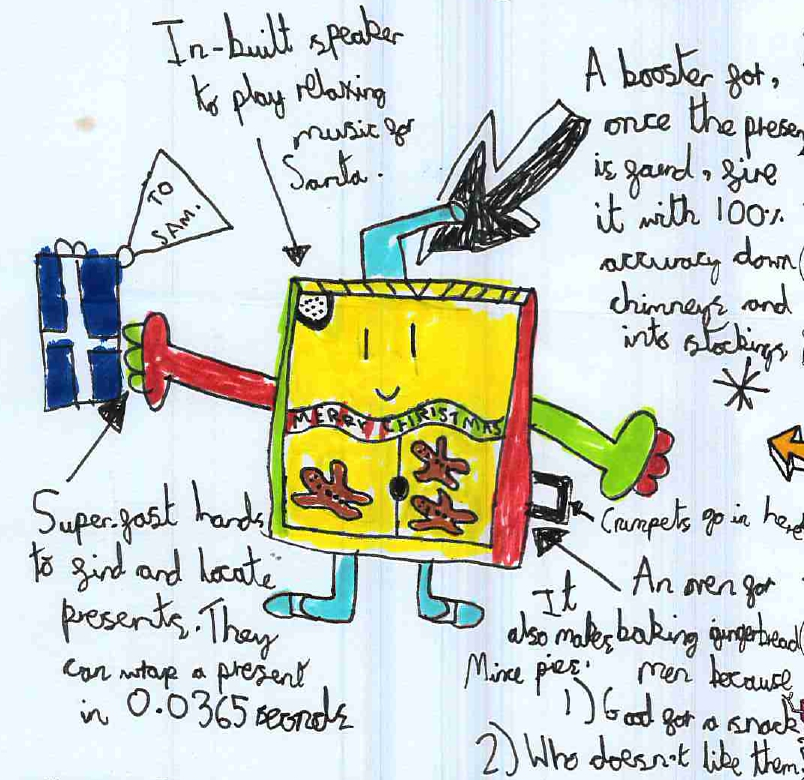 In-built speaker
to play relaxing
music for
Santa.
A booster for,
once the presen
is found, fire
it with 100%
accuracy down
chimneys and
into stockings
TO
SAM.
MERRY CHRISTMAS
Super-fast hands
to find and locate
presents. They
can wrap a present
in 0.0365 seconds
Crumpets go in here
An oven for
baking gingerbread
men because
1) Good for a snack
2) Who doesn't like them
It
also makes
Mince pies.